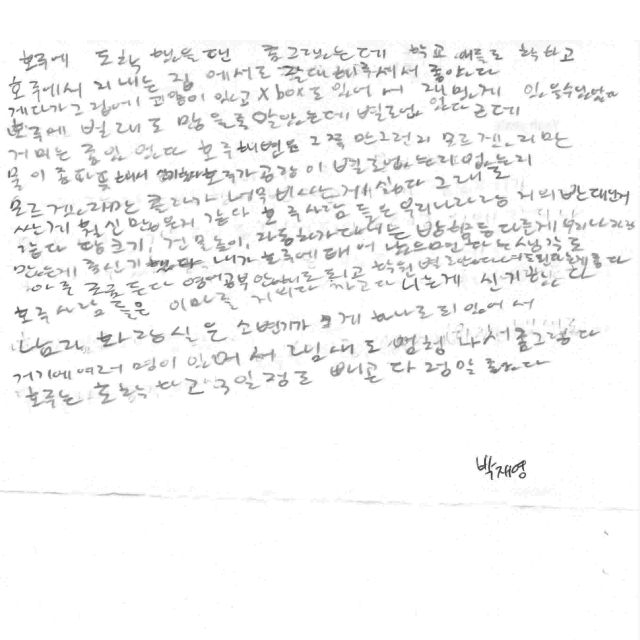 호주에 도착 했을땐 좀그랬는데 학교 애들도 착하고
호주에서 지내는 집 에서도 잘대해주셔서 좋았다
게다가 그집에 고양이 있고 Xbox도 있어서 재밌게 있을수있었다
호주에 벌래도 많을줄 알았는데 별로 없었다 근데
거미는 좀있었다 호주해변은 그쪽만그런지 모르겠지만
물이 좀파랗 호주가 공장이 별로없는지 없는지
모르겠지만 콜라가 너무비싸는게 싫다 그래도
사는게 훨신 만은거 같다 호주사람들은 우리나라랑 거의반대인거
같다 땅크기, 건물높이, 자동차가다니는 방향등 다른게 우리나라랑
많은게 좀신기했다 내가호주에태어났으면하는생각도
아주 조금든다 영어공부안해도되고 학원별로안다녀도되는게좋다
호주사람들은 이마를 다니는게 신기했다
남자 화장실은 소변기가 크게 하나로 되있어서
거기에여러 명이 있어서 냄새도 좀그렇다
호주는 도착하고 일정도 빼곤 다 정말 좋았다
박재영